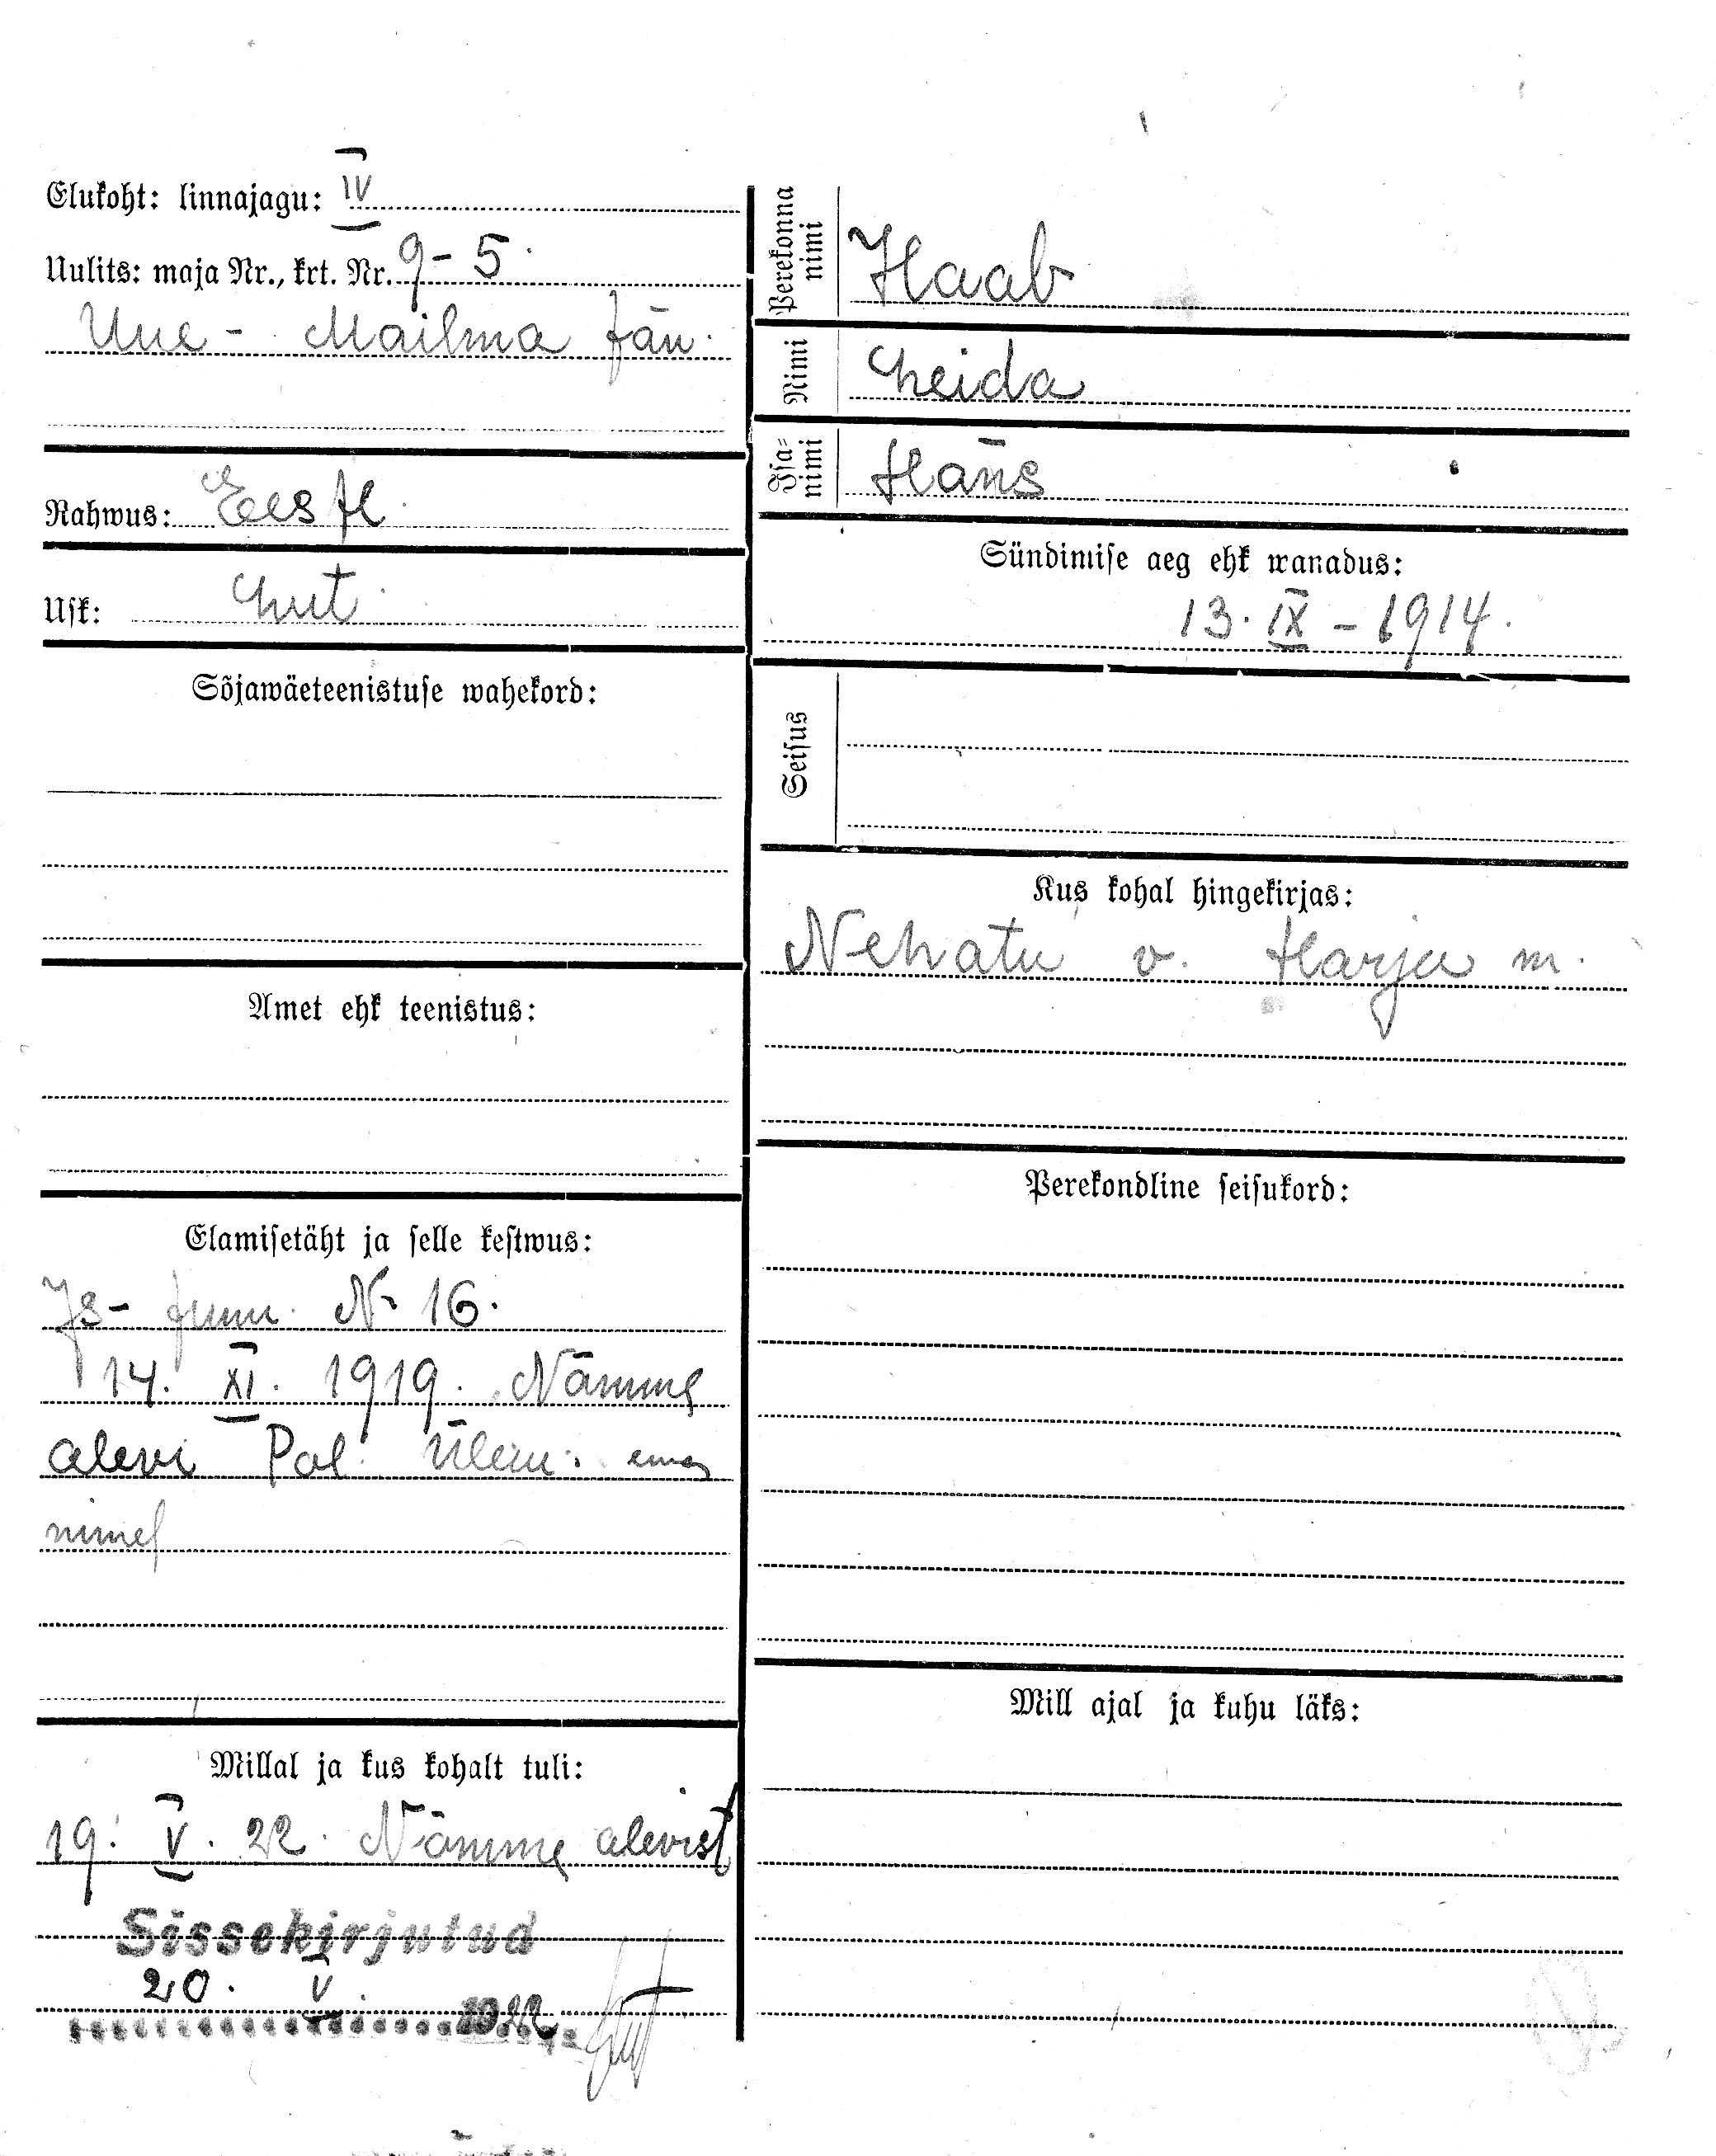 Elukoht: linnajagu: IV
Uulits: maja Nr., krt. Nr. 9-5.
Uue - Mailma tän.
Rahwus: Eesti
Usk: Lut.
Sõjawäeteenistuse wahekord:
Amet ehk teenistus:
Elamisetäht ja selle kestwus:
Is- tunn. N- 16.
14. XI. 1919. Nõmme
alevi Pol. Ülem. ema
nimel
Millal ja kus kohalt tuli:
19. V. 22. Nõmme alevist
Sissekirjutud
20. V. 1922
Perekonna nimi Haab
Nimi Leida
Isa-nimi Hans
Sündimise aeg ehk wanadus:
13. IX - 1914.
Seisus
Kus kohal hingekirjas:
Nehatu v. Harju m.
Perekondline seisukord:
Mill ajal ja kuhu läks: